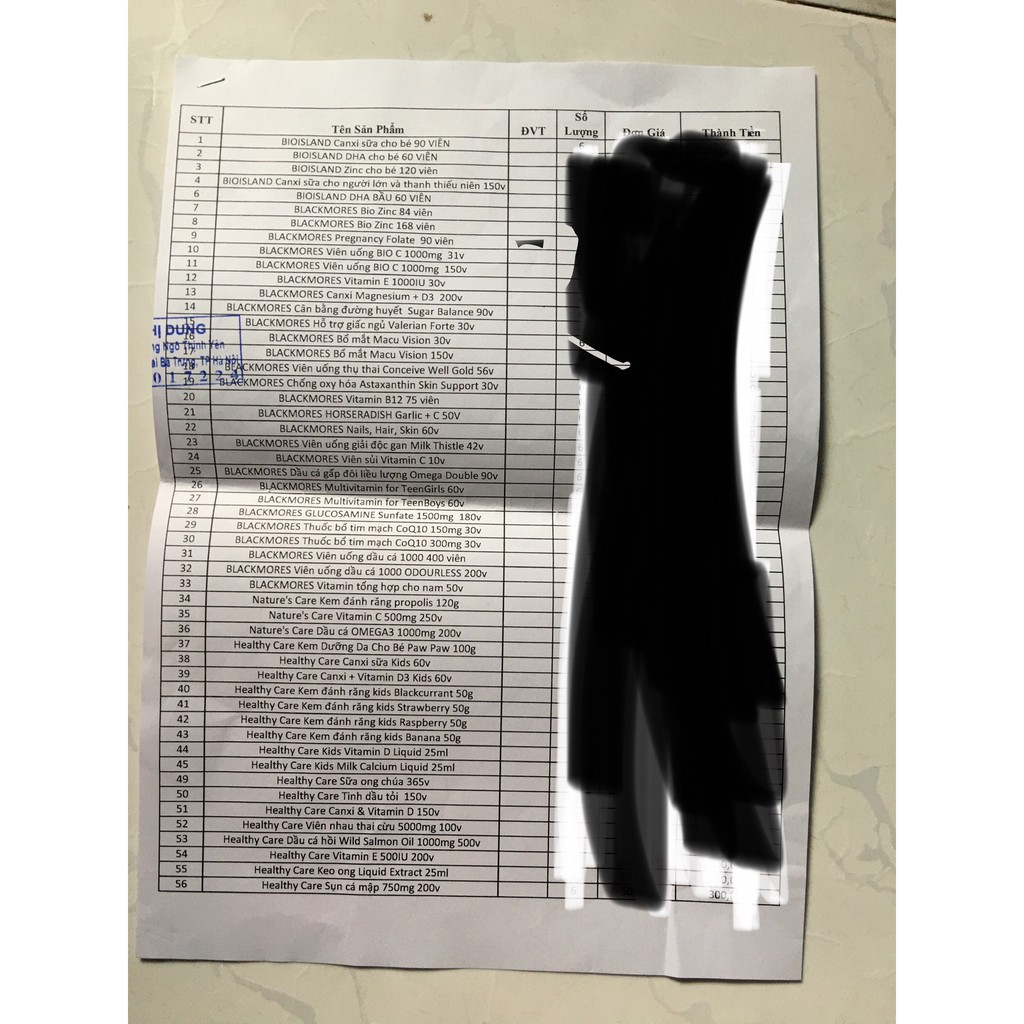 STT Tên Sản Phẩm ĐVT Số Lượng Đơn Giá Thành Tiền
1 BIOISLAND Canxi sữa cho bé 90 VIÊN 6
2 BIOISLAND DHA cho bé 60 VIÊN
3 BIOISLAND Zinc cho bé 120 viên
4 BIOISLAND Canxi sữa cho người lớn và thanh thiếu niên 150v
6 BIOISLAND DHA BẦU 60 VIÊN
7 BLACKMORES Bio Zinc 84 viên
8 BLACKMORES Bio Zinc 168 viên
9 BLACKMORES Pregnancy Folate 90 viên
10 BLACKMORES Viên uống BIO C 1000mg 31v
11 BLACKMORES Viên uống BIO C 1000mg 150v
12 BLACKMORES Vitamin E 1000IU 30v
13 BLACKMORES Canxi Magnesium + D3 200v
14 BLACKMORES Cân bằng đường huyết Sugar Balance 90v
15 BLACKMORES Hỗ trợ giấc ngủ Valerian Forte 30v
16 BLACKMORES Bổ mắt Macu Vision 30v
17 BLACKMORES Bổ mắt Macu Vision 150v
18 BLACKMORES Viên uống thụ thai Conceive Well Gold 56v
19 BLACKMORES Chống oxy hóa Astaxanthin Skin Support 30v
20 BLACKMORES Vitamin B12 75 viên
21 BLACKMORES HORSERADISH Garlic + C 50V
22 BLACKMORES Nails, Hair, Skin 60v
23 BLACKMORES Viên uống giải độc gan Milk Thistle 42v
24 BLACKMORES Viên sủi Vitamin C 10v
25 BLACKMORES Dầu cá gấp đôi liều lượng Omega Double 90v
26 BLACKMORES Multivitamin for TeenGirls 60v
27 BLACKMORES Multivitamin for TeenBoys 60v
28 BLACKMORES GLUCOSAMINE Sunfate 1500mg 180v
29 BLACKMORES Thuốc bổ tim mạch CoQ10 150mg 30v
30 BLACKMORES Thuốc bổ tim mạch CoQ10 300mg 30v
31 BLACKMORES Viên uống dầu cá 1000 400 viên
32 BLACKMORES Viên uống dầu cá 1000 ODOURLESS 200v
33 BLACKMORES Vitamin tổng hợp cho nam 50v
34 Nature's Care Kem đánh răng propolis 120g
35 Nature's Care Vitamin C 500mg 250v
36 Nature's Care Dầu cá OMEGA3 1000mg 200v
37 Healthy Care Kem Dưỡng Da Cho Bé Paw Paw 100g
38 Healthy Care Canxi sữa Kids 60v
39 Healthy Care Canxi + Vitamin D3 Kids 60v
40 Healthy Care Kem đánh răng kids Blackcurrant 50g
41 Healthy Care Kem đánh răng kids Strawberry 50g
42 Healthy Care Kem đánh răng kids Raspberry 50g
43 Healthy Care Kem đánh răng kids Banana 50g
44 Healthy Care Kids Vitamin D Liquid 25ml
45 Healthy Care Kids Milk Calcium Liquid 25ml
49 Healthy Care Sữa ong chúa 365v
50 Healthy Care Tinh dầu tỏi 150v
51 Healthy Care Canxi & Vitamin D 150v
52 Healthy Care Viên nhau thai cừu 5000mg 100v
53 Healthy Care Dầu cá hồi Wild Salmon Oil 1000mg 500v
54 Healthy Care Vitamin E 500IU 200v
55 Healthy Care Keo ong Liquid Extract 25ml
56 Healthy Care Sụn cá mập 750mg 200v 6 300,
HỊ DUNG
ng Ngô Thịnh Yên
ai Bà Trưng, TP Hà Nội